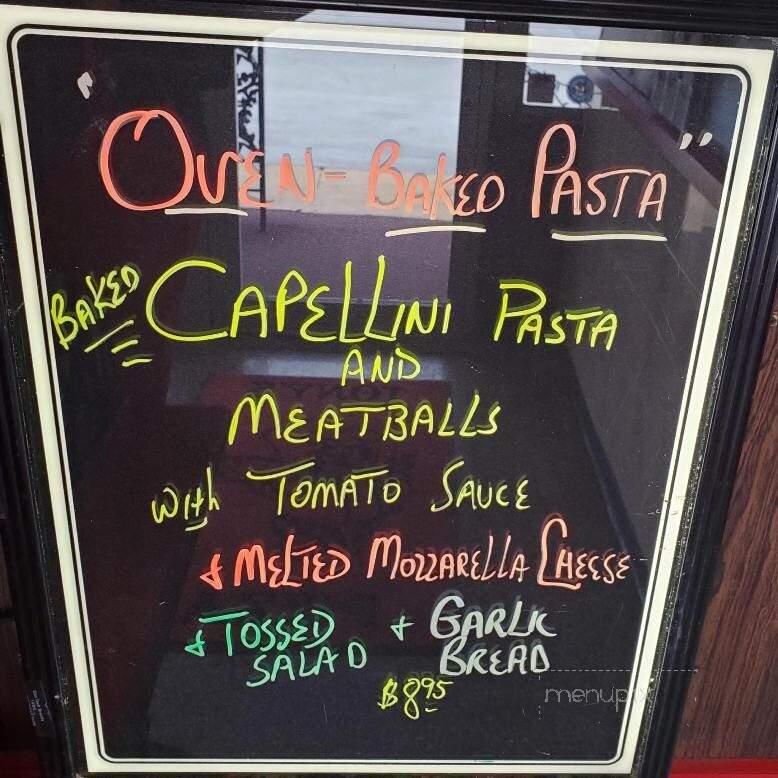 "OVEN-BAKED PASTA"
BAKED CAPELLINI PASTA
AND
MEATBALLS
with TOMATO SAUCE
& MELTED MOZZARELLA CHEESE
& TOSSED SALAD + GARLIC BREAD
$8.95
menupix